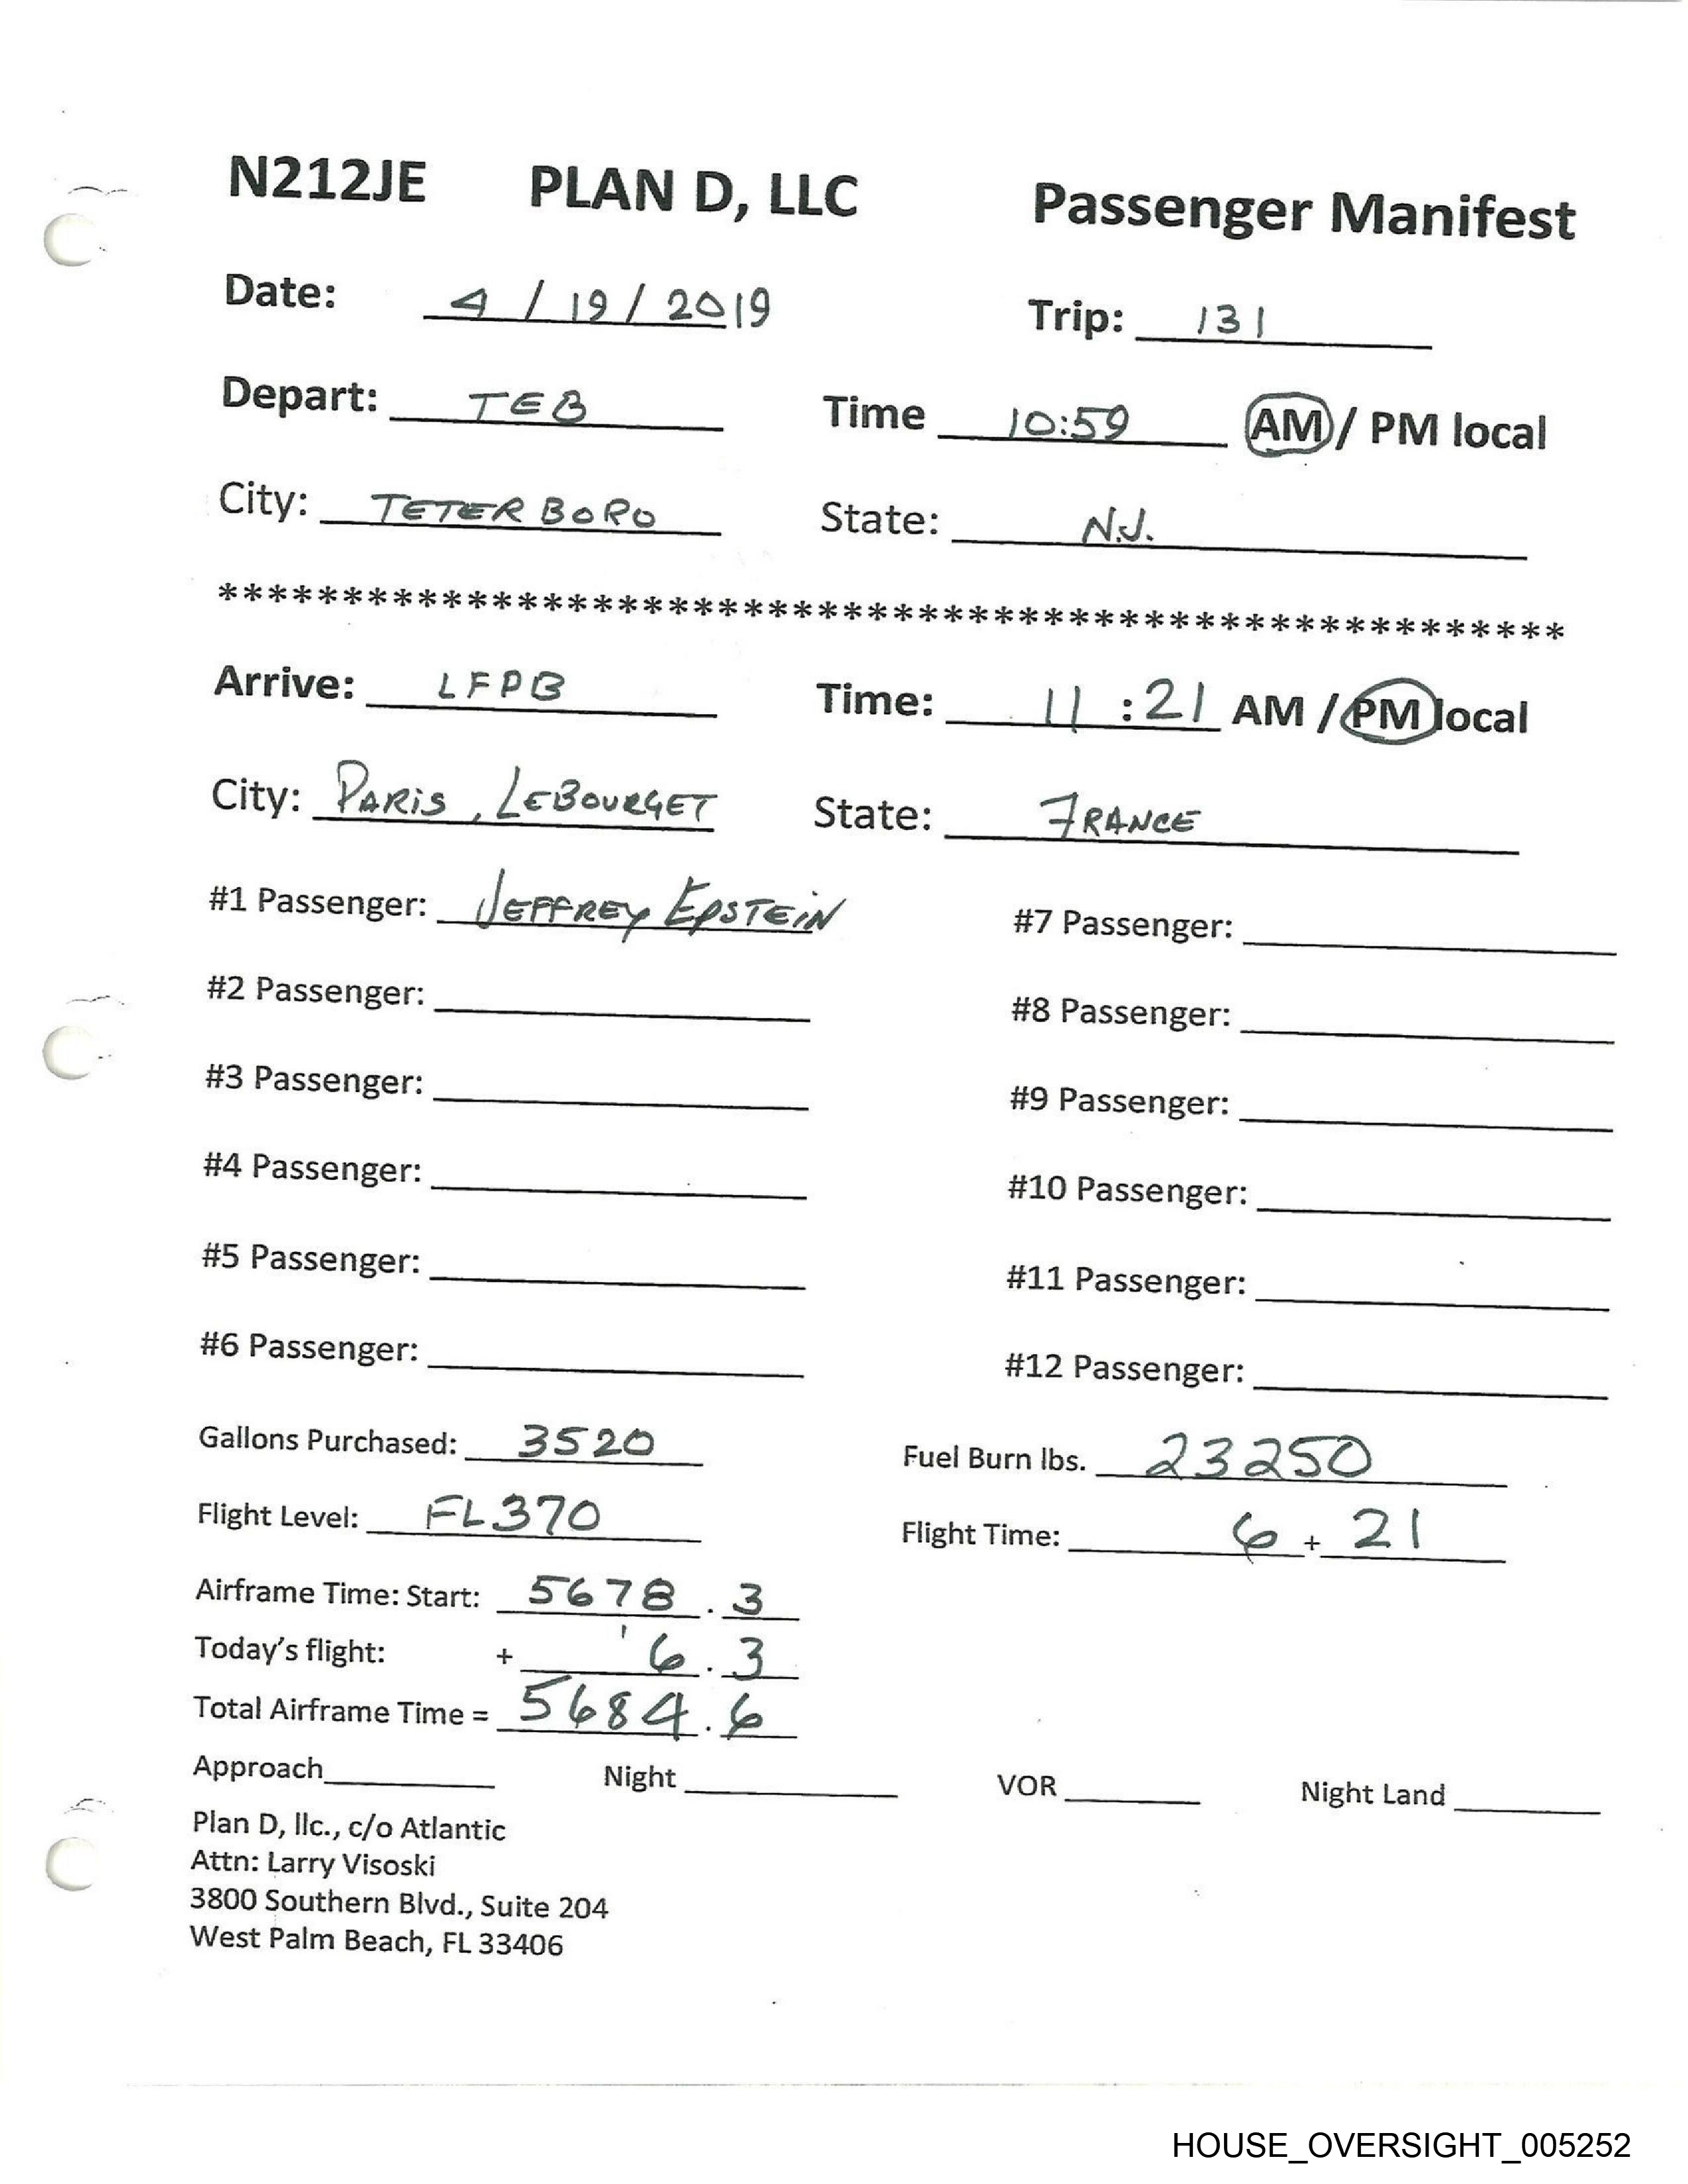 N212JE PLAN D, LLC Passenger Manifest
Date: 4 / 19 / 2019 Trip: 131
Depart: TEB Time 10:59 AM / PM local
City: TETERBORO State: N.J.
******************************************************
Arrive: LFPB Time: 11 : 21 AM / PM local
City: PARIS, LEBOURGET State: FRANCE
#1 Passenger: JEFFREY EPSTEIN #7 Passenger:
#2 Passenger: #8 Passenger:
#3 Passenger: #9 Passenger:
#4 Passenger: #10 Passenger:
#5 Passenger: #11 Passenger:
#6 Passenger: #12 Passenger:
Gallons Purchased: 3520 Fuel Burn lbs. 23250
Flight Level: FL370 Flight Time: 6 + 21
Airframe Time: Start: 5678 . 3
Today's flight: + 6 . 3
Total Airframe Time = 5684 . 6
Approach Night VOR Night Land
Plan D, llc., c/o Atlantic
Attn: Larry Visoski
3800 Southern Blvd., Suite 204
West Palm Beach, FL 33406
HOUSE_OVERSIGHT_005252